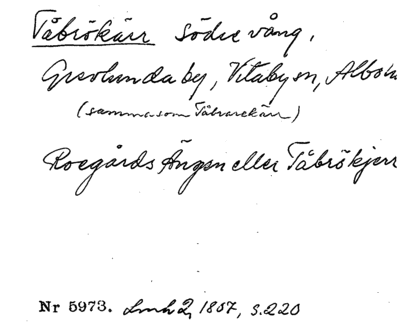 Tåbrökärr södre vång,
Grevlunda by, Vitaby sn, Albo h
(samma som Tåbrarekärr)
Roegårds Ängen eller Tåbrökjerr
Nr 5973. Lmh 2, 1807, s. 220